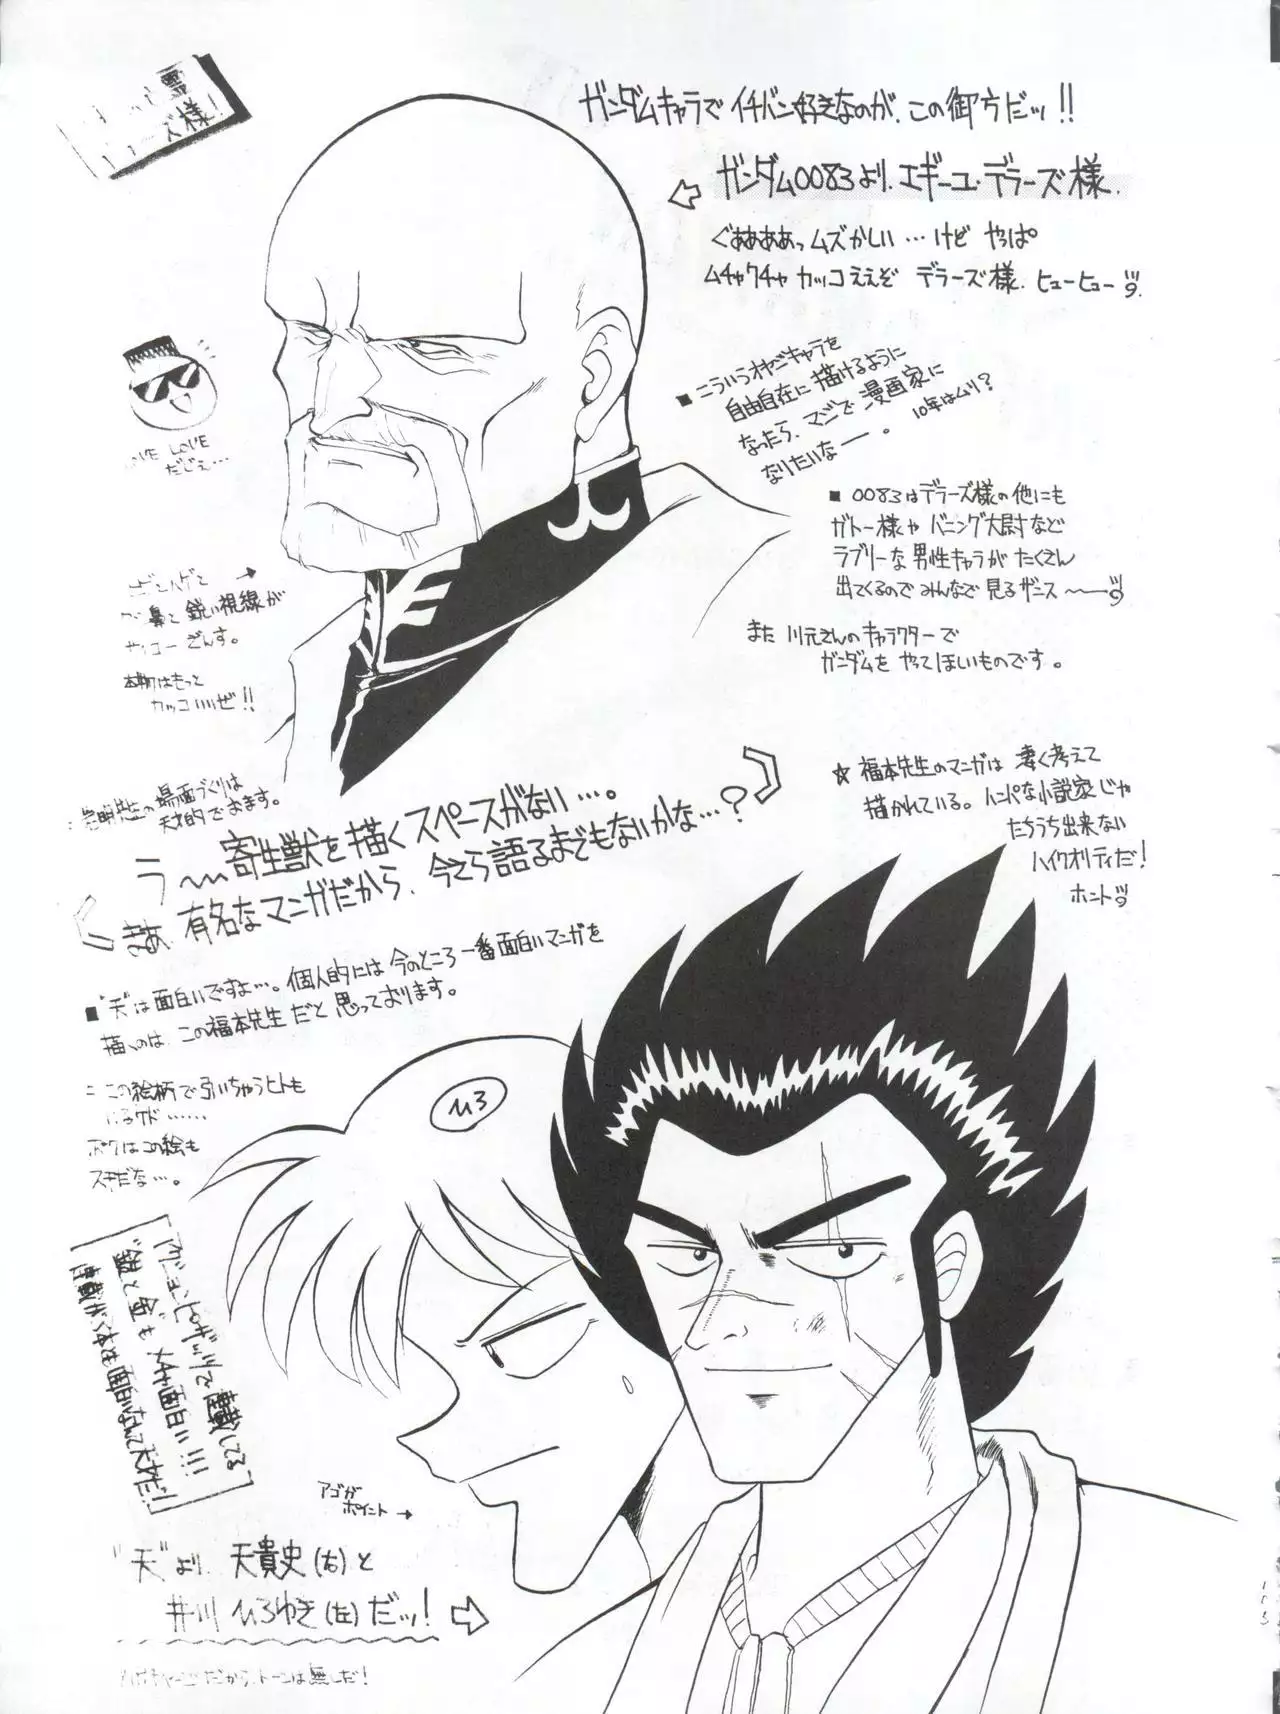 様!
ガンダムキャラで イチバン好きなのが、この御方だッ!!
ガンダム0083より、エギーユ・デラーズ様。
ぐああああっ ムズかしい…けど やっぱ
ムチャクチャ カッコええぞ デラーズ様、ヒューヒュー
■こういうオヤジキャラを
自由自在に描けるように
なったら、マジで漫画家に
なりたいなー。 10年はムリ?
LOVE
だじぇ…
■0083はデラーズ様の他にも
ガトー様や バニング大尉など
ラブリーな 男性キャラが たくさん
出てくるので みんなで 見るザンス
鼻と 鋭い視線が
ざんす。
また 川元さんのキャラクターで
ガンダムを やってほしいものです。
本物はもっと
カッコいいぜ!!
☆福本先生のマンガは 凄く考えて
描かれている。ハンパな小説家じゃ
たちうち出来ない
ハイクオリティだ!
ホント
先生の場面づくりは
天才的でおます。
う〜寄生獣を描くスペースがない…。
まあ、有名なマンガだから、今さら語るまでもないかな…?
■"天"は面白いですよ…。個人的には 今のところ 一番面白いマンガを
描くのは、この福本先生だと 思っております。
この絵柄で引いちゃうヒトも
いるケド……
ボクはこの絵も
スキだな…。
ひろ
アクションピザッツで連載してる
"銀と金"も メチャ面白い!!!
アゴが
ポイント→
"天"より、天貴史(右)と
井川ひろゆき(左)だッ!
だから、トーンは無しだ!